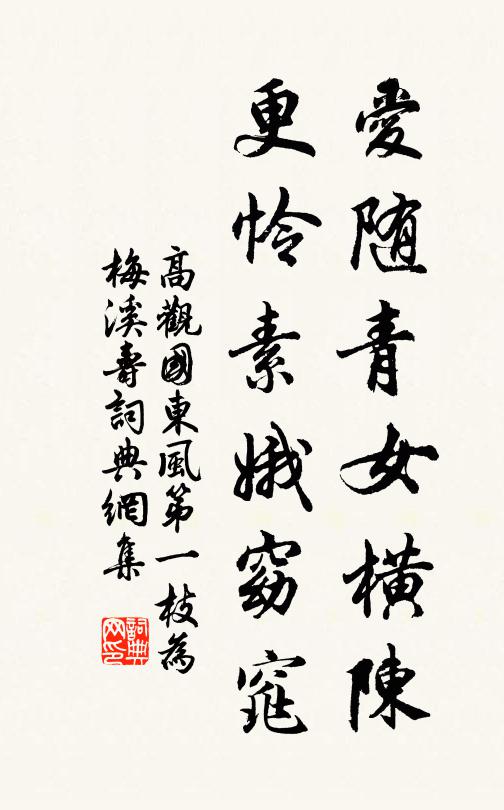 愛随青女橫陳
更怜素娥窈窕
高觀國東風第一枝為
梅溪壽詞典網集
詞典网印